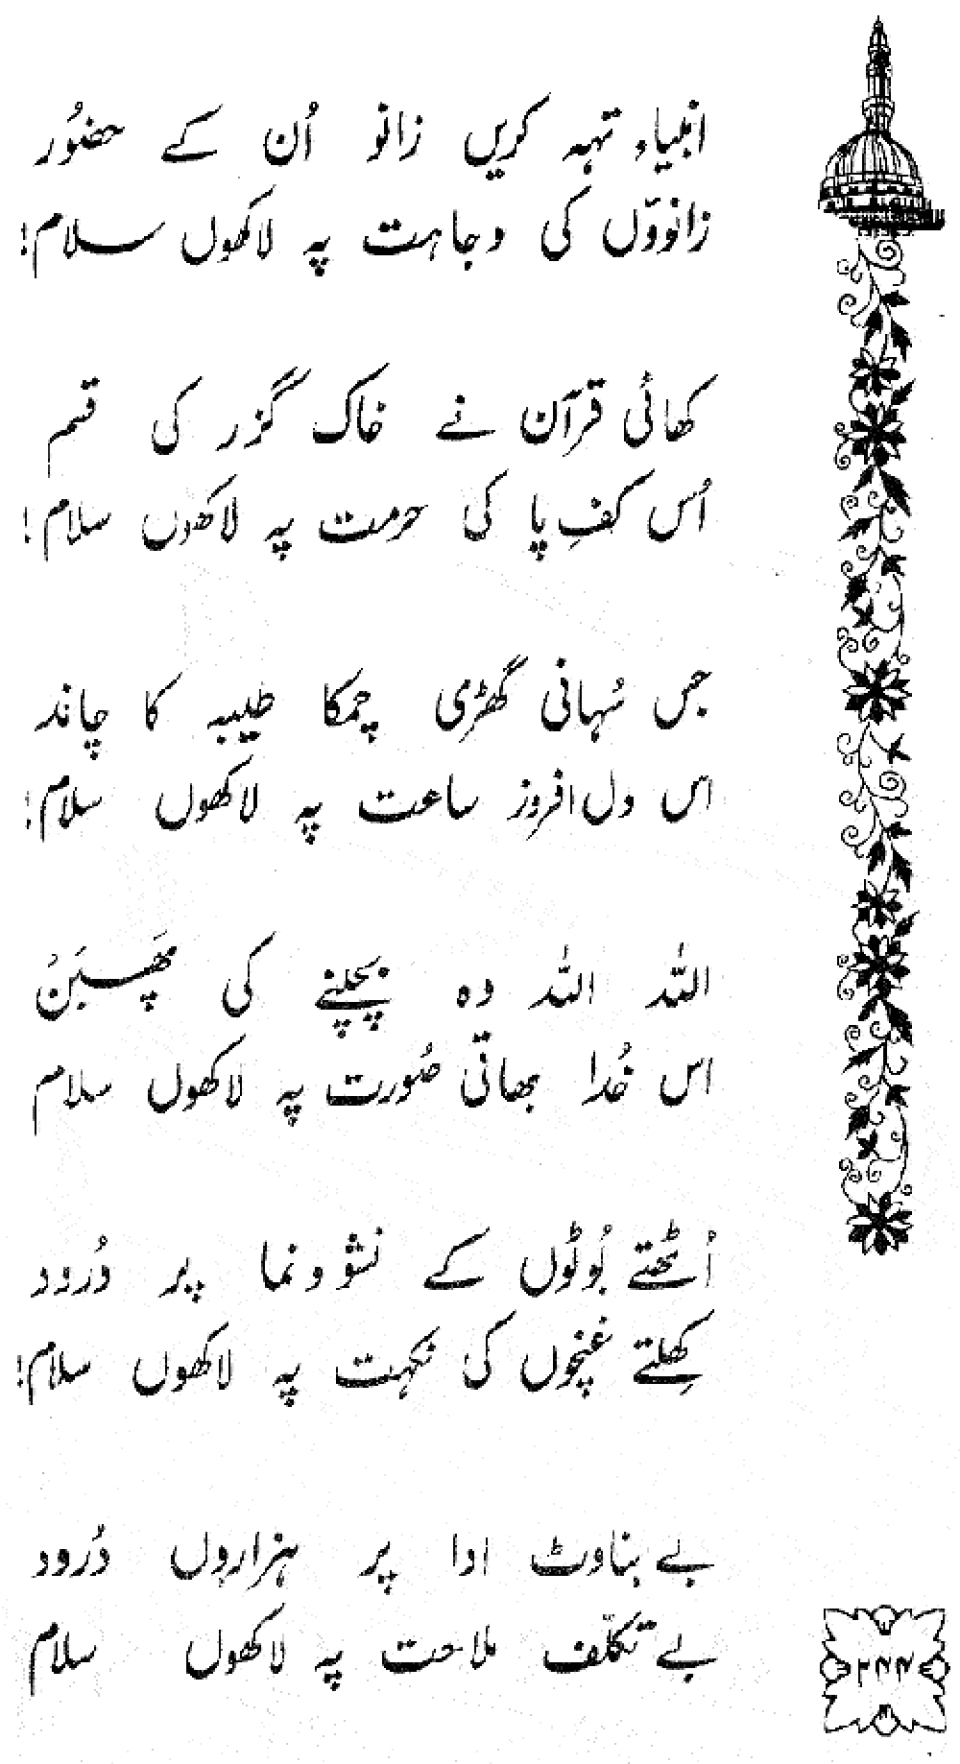 انبیاء تہہ کریں زانو اُن کے حضوُر
زانووّں کی وجاہت پہ لاکھوں سلام!
کھائی قرآن نے خاک گزر کی قسم
اُس کفِ پا کی حرمت پہ لاکھوں سلام!
جس سُہانی گھڑی چمکا طیبہ کا چاند
اس دل افروز ساعت پہ لاکھوں سلام!
اللہ اللہ وہ بچپنے کی پھَبَنْ
اس خُدا بھاتی صُورت پہ لاکھوں سلام
اُٹھتے بُوٹوں کے نشوونما پر دُرود
کِھلتے غنچوں کی نکہت پہ لاکھوں سلام!
بے بناوٹ ادا پر ہزاروں دُرود
بے تکلّف ملاحت پہ لاکھوں سلام